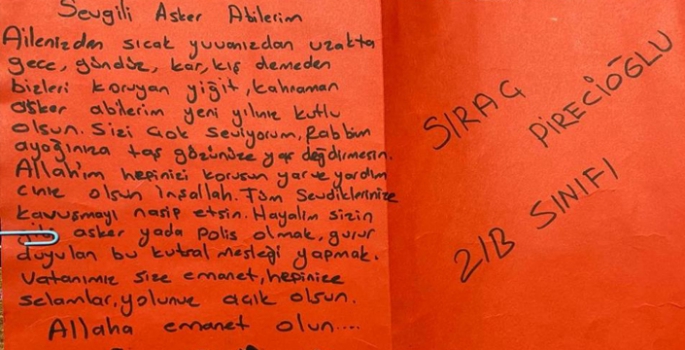 Sevgili Asker Abilerim
Ailenizden sıcak yuvanızdan uzakta
gece, gündüz, kar, kış demeden
bizleri koruyan yiğit, kahraman
asker abilerim yeni yılınız kutlu
olsun. Sizi çok seviyorum, Rabbim
ayağınıza taş gözünüze yaş değdirmesin.
Allah'ım hepinizi korusun yar ve yardım
cınız olsun İnşallah. Tüm Sevdiklerinize
kavuşmayı nasip etsin. Hayalim sizin
gibi asker yada polis olmak, gurur
duyulan bu kutsal mesleği yapmak.
Vatanımız size emanet, hepinize
selamlar, yolunuz açık olsun.
Allaha emanet olun....
SIRAÇ
PİRECİOĞLU
2/B SINIFI